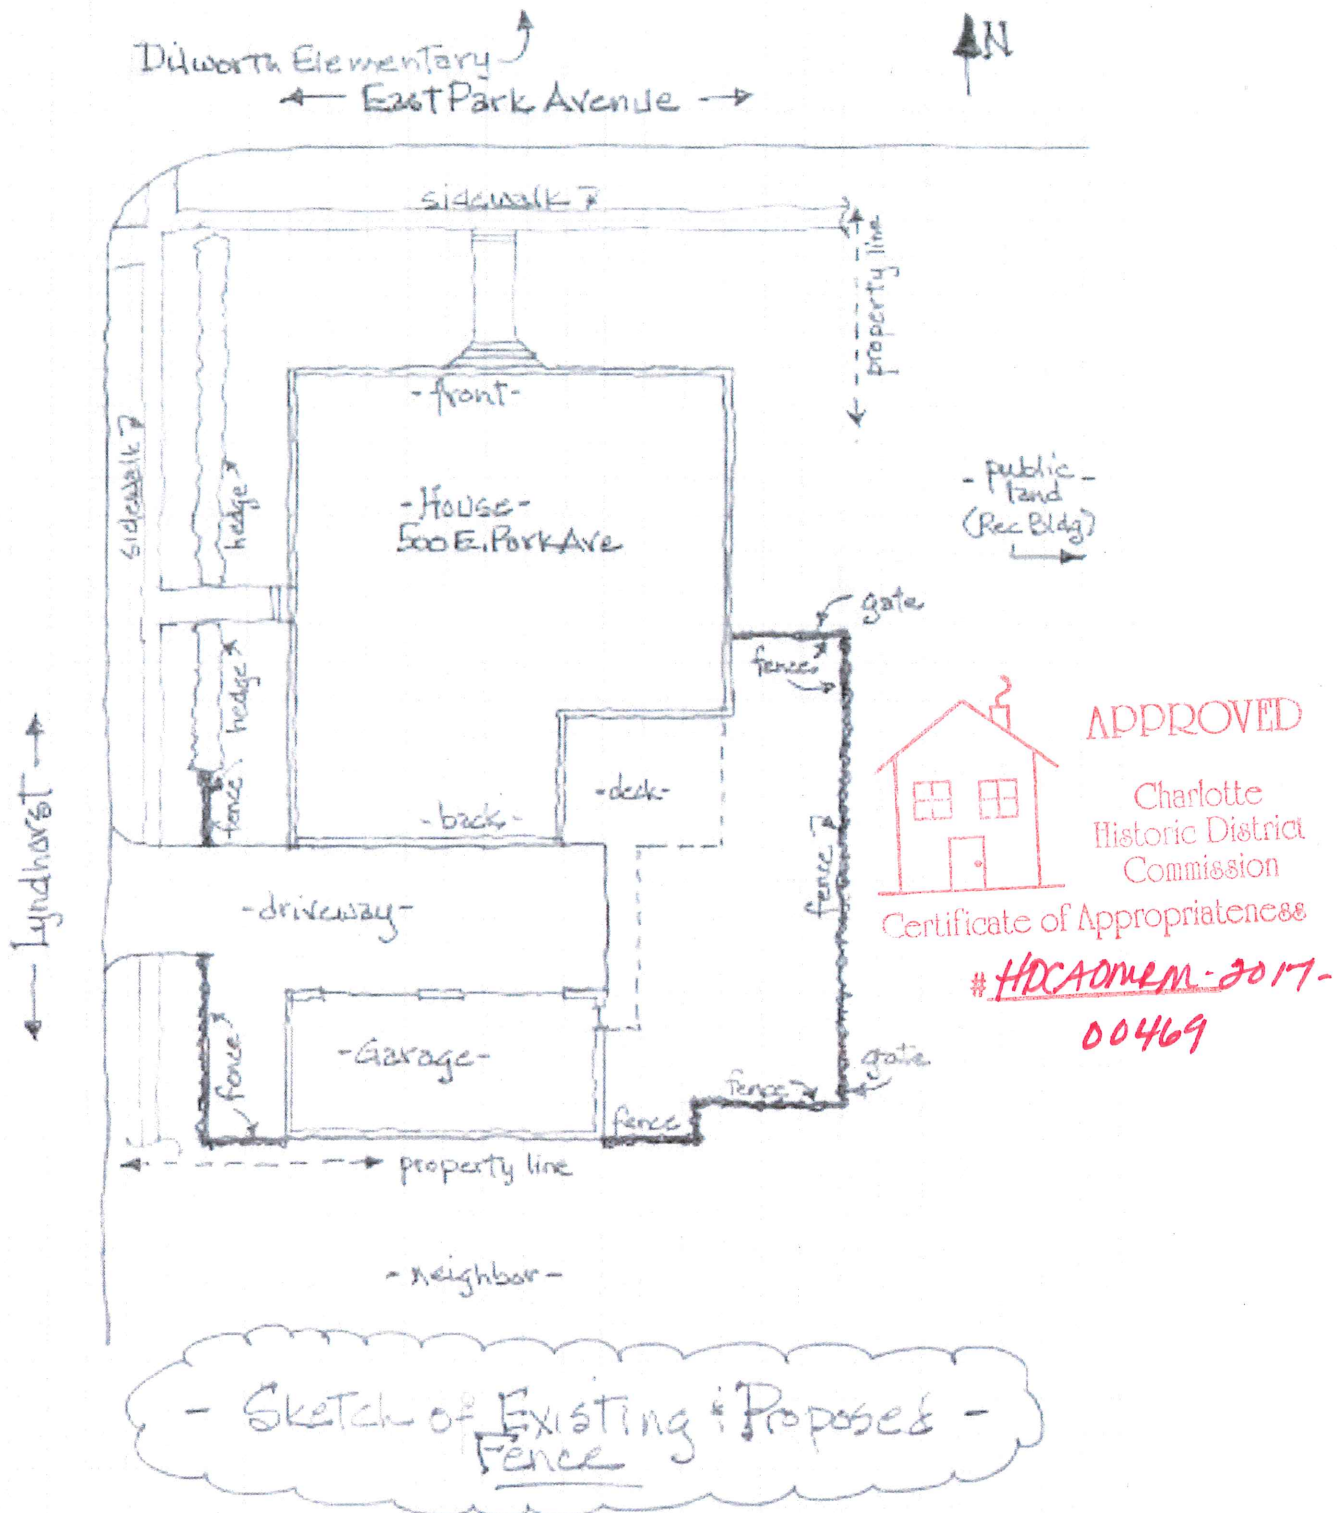 Dilworth Elementary
East Park Avenue
N
sidewalk
property line
-front-
sidewalk
hedge
-House-
500 E. Park Ave
-public-
land
(Rec Bldg)
gate
fence
hedge
fence
-deck-
-back-
fence
APPROVED
Charlotte
Historic District
Commission
Certificate of Appropriateness
Lyndhurst
-driveway-
# HDCADMRM-2017-
00469
fence
-Garage-
gate
fence
fence
property line
-neighbor-
- Sketch of Existing & Proposed -
Fence